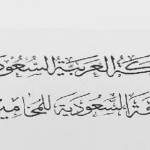 العربية السعود
السعودية للمحامين